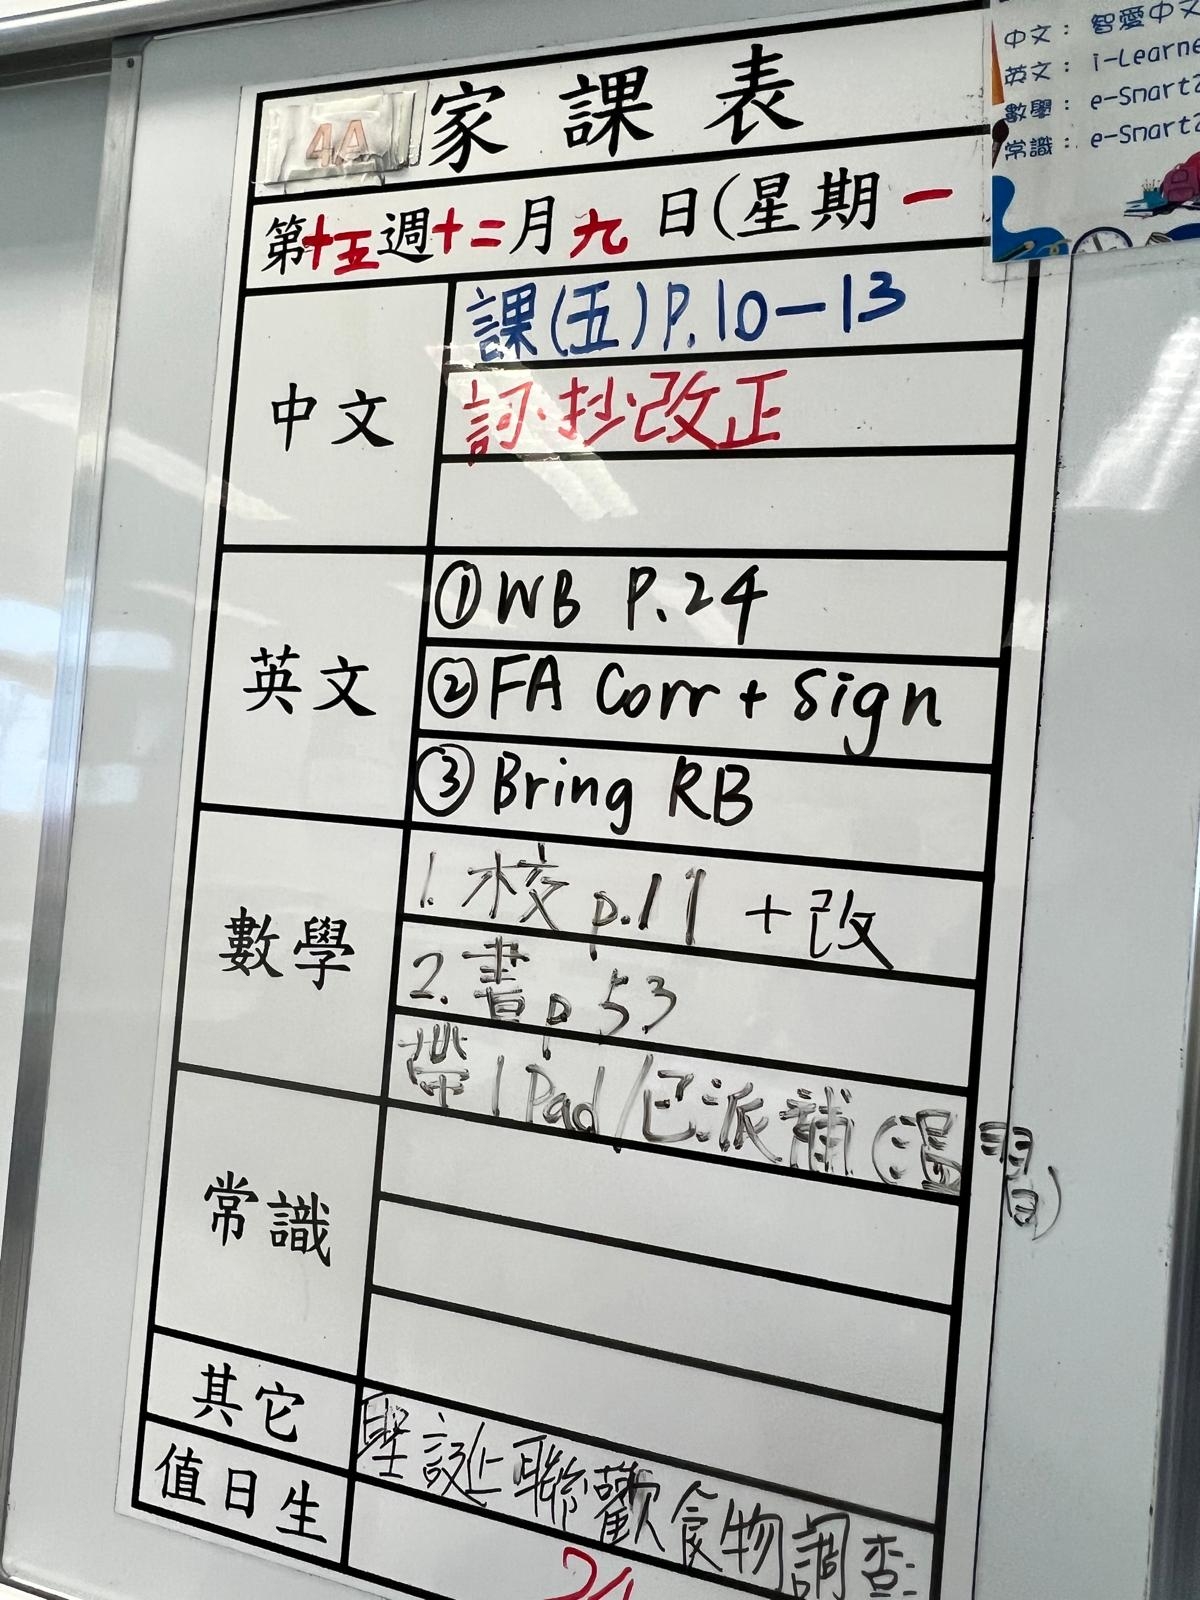 4A 家課表
第十五週十二月九日(星期一
中文
課(五)P.10-13
詞.抄.改正
英文
①WB P.24
②FA Corr + Sign
③Bring RB
數學
1. 校 p.11 +改
2. 書p 53
帶 I Pad/已派補(溫習)
常識
其它
聖誕聯歡食物調查
值日生
中文: 智愛中文
英文: i-Learne
數學: e-Smart2
常識: e-Smart2